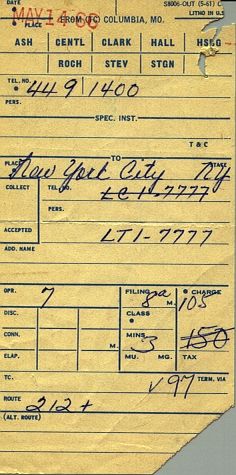 DATE S8006-OUT (5-61) C
LITHO IN U.S.
MAY 14 '66
PLACE FROM (TC) COLUMBIA, MO.
ASH CENTL CLARK HALL HSBG
ROCH STEV STGN
TEL. NO. 449 1400
PERS.
SPEC. INST.
T & C
PLACE TO
New York City NY
COLLECT TEL. NO. LC1-7777
PERS.
ACCEPTED LT1-7777
ADD. NAME
OPR. 7 FILING 8a M. CHARGE 105
DISC. CLASS
CONN. MINS. 3 150
ELAP. M. MU. MG. TAX
TC. V97 TERM. VIA
ROUTE 212+
(ALT. ROUTE)